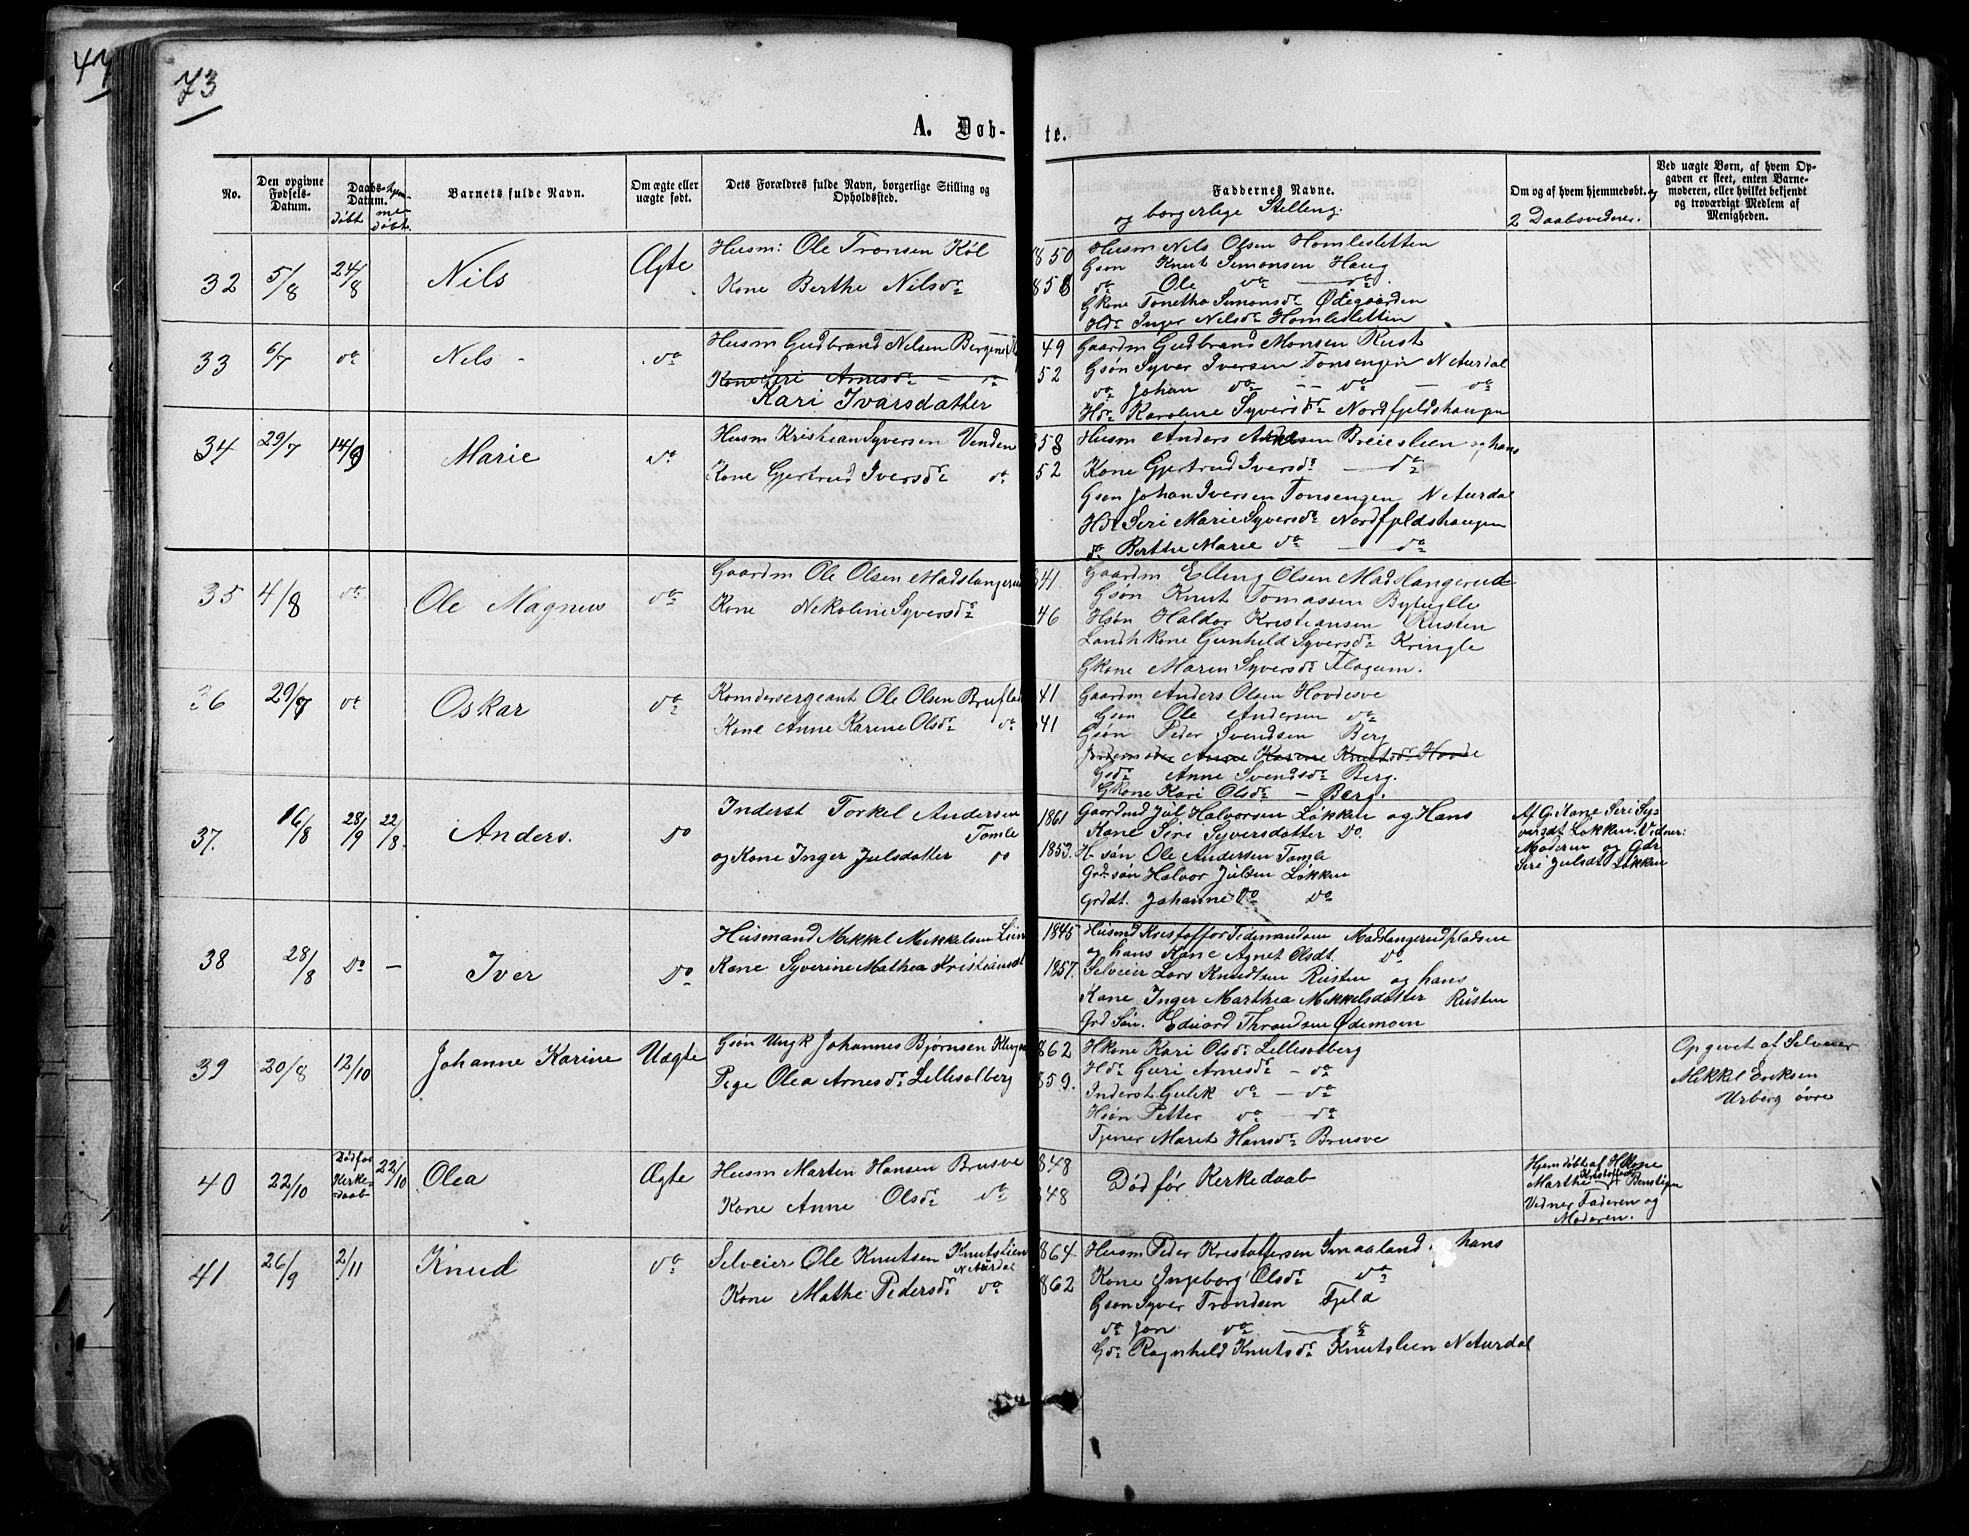 73
A. Døb-
te.
No.
Den opgivne Fødsels-Datum.
Daabs-Datum.
døbt
hjemmedøbt.
Barnets fulde Navn.
Om ægte eller uægte født.
Dets Forældres fulde Navn, borgerlige Stilling og Opholdssted.
Faddernes Navne.
og borgerlige Stelling.
Om og af hvem hjemmedøbt. og
2 Daabsvidner.
Ved uægte Børn, af hvem Op-
gaven er skeet, enten Barne-
moderen, eller hvilket bekjendt
og troværdigt Medlem af
Menigheden.
32 5/8 24/8 Nils Ægte
Husm: Ole Tronsen Køl 850
Kone Berthe Nilsdr 858
Husm Nils Olsen Homlesletten
Gsøn Knut Simonsen Haug
do Ole do do.
Gkone Tonetha Simonsdr Ødegaarden
Hdr Inger Nilsdr Homlesletten
33 6/7 do Nils do
Husm Gudbrand Nilsen Bergene 49
Kone Seri Arnesdr do 52
Kari Ivarsdatter
Gaardm Gudbrand Monsen Rust
Gsøn Syver Iversen Tonsengen N Aurdal
do Johan do do do
Hdr Karoline Syversdr Nordfjeldshaugen
34 29/7 14/9 Marie do
Husm Kristian Syversen Venden 858
Kone Gjertrud Iversdr do 52
Husm Anders Breieslien og hans
Kone Gjertrud Iversdr do
Gsøn Johan Iversen Tonsengen N Aurdal
Hdr Seri Marie Syversdr Nordfjeldshaugen
do Berthe Marie do do
35 4/8 do Ole Magnus do
Gaardm Ole Olsen Madslangerud 841
Kone Nekoline Syversdr 46
Gaardm Elling Olsen Madslangerud
Gsøn Knut Tomassen Byfuglle
Hsøn Haldor Kristiansen Rusten
Landhkone Gunhild Syversdr Kringle
Gkone Maren Syversdr Flagum.
36 29/7 do Oskar do
Komdersergeant Ole Olsen Bruflat 41
Kone Anne Karine Olsdr do 841
Gaardm Anders Olsen Hovdesve
Gsøn Ole Andersen do
Gsøn Peder Svendsen Berg
Jordemoder Anne Karine Knutsdr Hovde
Gdr Anne Svendsdr Berg.
Gkone Kari Olsdr - Berg.
37. 16/8 28/9 22/8. Anders. do
Inderst Torkel Andersen 1861
Tomle
og Kone Inger Julsdatter do 1853.
Gaardmd Jul Halvorsen Løkken og Hans
Kone Seri Syversdatter Do.
H-søn Ole Andersen Tomle
Grdsøn Halvor Julsen Løkken
Grddt. Johanne Do Do
Af G. Kone Seri Sy-
versdt Løkken. Vidner:
Moderen og Gdr
Seri Julsdt Løkken
38 28/8 Do — Iver Do
Husmand Mikkel Mikkelsen Lien 1845
Kone Syverine Mathea Kristiansdt 1857.
Husmd Kristoffer Tidemandsen Madslangerudpladsen
og hans Kone Agnet Olsdt. Do
Selveier Lars Knudtsen Rusten og hans
Kone Inger Marthea Mikkelsdatter Rusten
Grd Søn. Edvard Throndsen Ødemoen
39 20/8 12/10 Johanne Karine Uægte
Gsøn Ungk Johannes Bjørnsen 862
Pige Olea Arnesdr Lillesolberg 859.
Hkone Kari Olsdr Lillesolberg
Hdr Guri Arnesdr - do
Inderst Gulik do - do
Hsøn Petter do do
Tjener Marit Hansdr Brusve
Opgivet af Selveier
Mikkel Eriksen
Urberg øvre
40 22/10 Død før Kirke-daab 22/10 Olea Ægte
Husm Martin Hansen Brusve 848
Kone Anne Olsdr do 48
Død før Kirkedaab
Hjemdøbt af Hkone
Marthe Kristoffersdr
Vidner Faderen og
Moderen.
41 26/9 2/11 Knud do
Selveier Ole Knutsen Knutslien 864.
N Aurdal
Kone Mathe Pedersdr do 862
Husm Peder Kristoffersen Smaaland hans
Kone Ingeborg Olsdr do
Gsøn Syver Trondsen Fjeld
do Jon do do
Gdr Ragnhild Knutsdr Knutslien N Aurdal